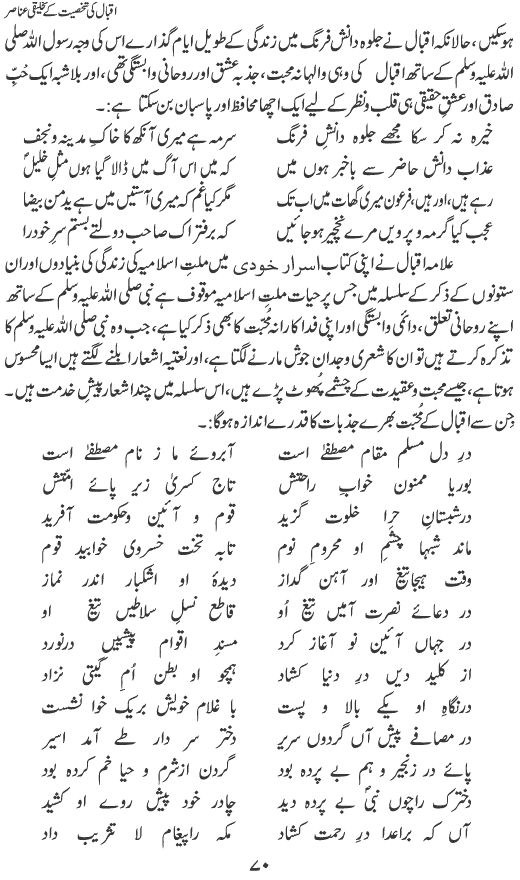 اقبال کی شخصیت کے تخلیقی عناصر
ہوسکیں، حالانکہ اقبال نے جلوہ دانش فرنگ میں زندگی کے طویل ایام گذارے اس کی وجہ رسول اللہ صلی
اللہ علیہ وسلم کے ساتھ اقبال کی وہی والہانہ محبت، جذبہ عشق اور روحانی وابستگی تھی، اور بلاشبہ ایک حبِّ
صادق اور عشقِ حقیقی ہی قلب و نظر کے لیے ایک اچھا محافظ اور پاسبان بن سکتا ہے:۔
خیرہ نہ کر سکا مجھے جلوہ دانشِ فرنگ سرمہ ہے میری آنکھ کا خاکِ مدینہ و نجف
عذاب دانش حاضر سے باخبر ہوں میں کہ میں اس آگ میں ڈالا گیا ہوں مثلِ خلیلؑ
رہے ہیں، اور ہیں، فرعون میری گھات میں اب تک مگر کیا غم کہ میری آستیں میں ہے یدمن بیضا
عجب کیا گر مہ و پرویں مرے نخچیر ہو جائیں کہ برفتراک صاحب دولتے بستم سرِ خود را
علامہ اقبال نے اپنی کتاب اسرار خودی میں ملتِ اسلامیہ کی زندگی کی بنیادوں اور ان
ستونوں کے ذکر کے سلسلہ میں جس پر حیات ملتِ اسلامیہ موقوف ہے نبی صلی اللہ علیہ وسلم کے ساتھ
اپنے روحانی تعلق، دائمی وابستگی اور اپنی فداکارانہ محبّت کا بھی ذکر کیا ہے، جب وہ نبی صلی اللہ علیہ وسلم کا
تذکرہ کرتے ہیں تو ان کا شعری وجدان جوش مارنے لگتا ہے، اور نعتیہ اشعار ابلنے لگتے ہیں ایسا محسوس
ہوتا ہے، جیسے محبت و عقیدت کے چشمے پھوٹ پڑے ہیں، اس سلسلہ میں چند اشعار پیشِ خدمت ہیں۔
جن سے اقبال کے محبّت بھرے جذبات کا قدرے اندازہ ہوگا:۔
درِ دل مسلم مقام مصطفےٰ است آبروئے ما ز نام مصطفےٰ است
بوریا ممنون خوابِ راحتش تاج کسریٰ زیر پائے امّتش
درشبستانِ حرا خلوت گزید قوم و آئین وحکومت آفرید
ماند شبہا چشمِ او محرومِ نوم تابہ تخت خسروی خوابید قوم
وقت ہیجاتیغ اور آہن گداز دیدۂ او اشکبار اندر نماز
در دعائے نصرت آمیں تیغ اُو قاطع نسلِ سلاطیں تیغ او
در جہاں آئین نو آغاز کرد مسندِ اقوام پیشیں درنورد
از کلید دیں درِ دنیا کشاد ہمچو او بطن اُمِ گیتی نزاد
درنگاہِ او یکے بالا و پست با غلام خویش بریک خوا نشست
در مصافے پیش آں گردوں سریر دختر سر دار طے آمد اسیر
پائے در زنجیر و ہم بے پردہ بود گردن ازشرم و حیا خم کردہ بود
دخترک راچوں نبیؐ بے پردہ دید چادر خود پیش روے او کشید
آں کہ براعدا درِ رحمت کشاد مکہ راپیغام لا تثریب داد
۷۰